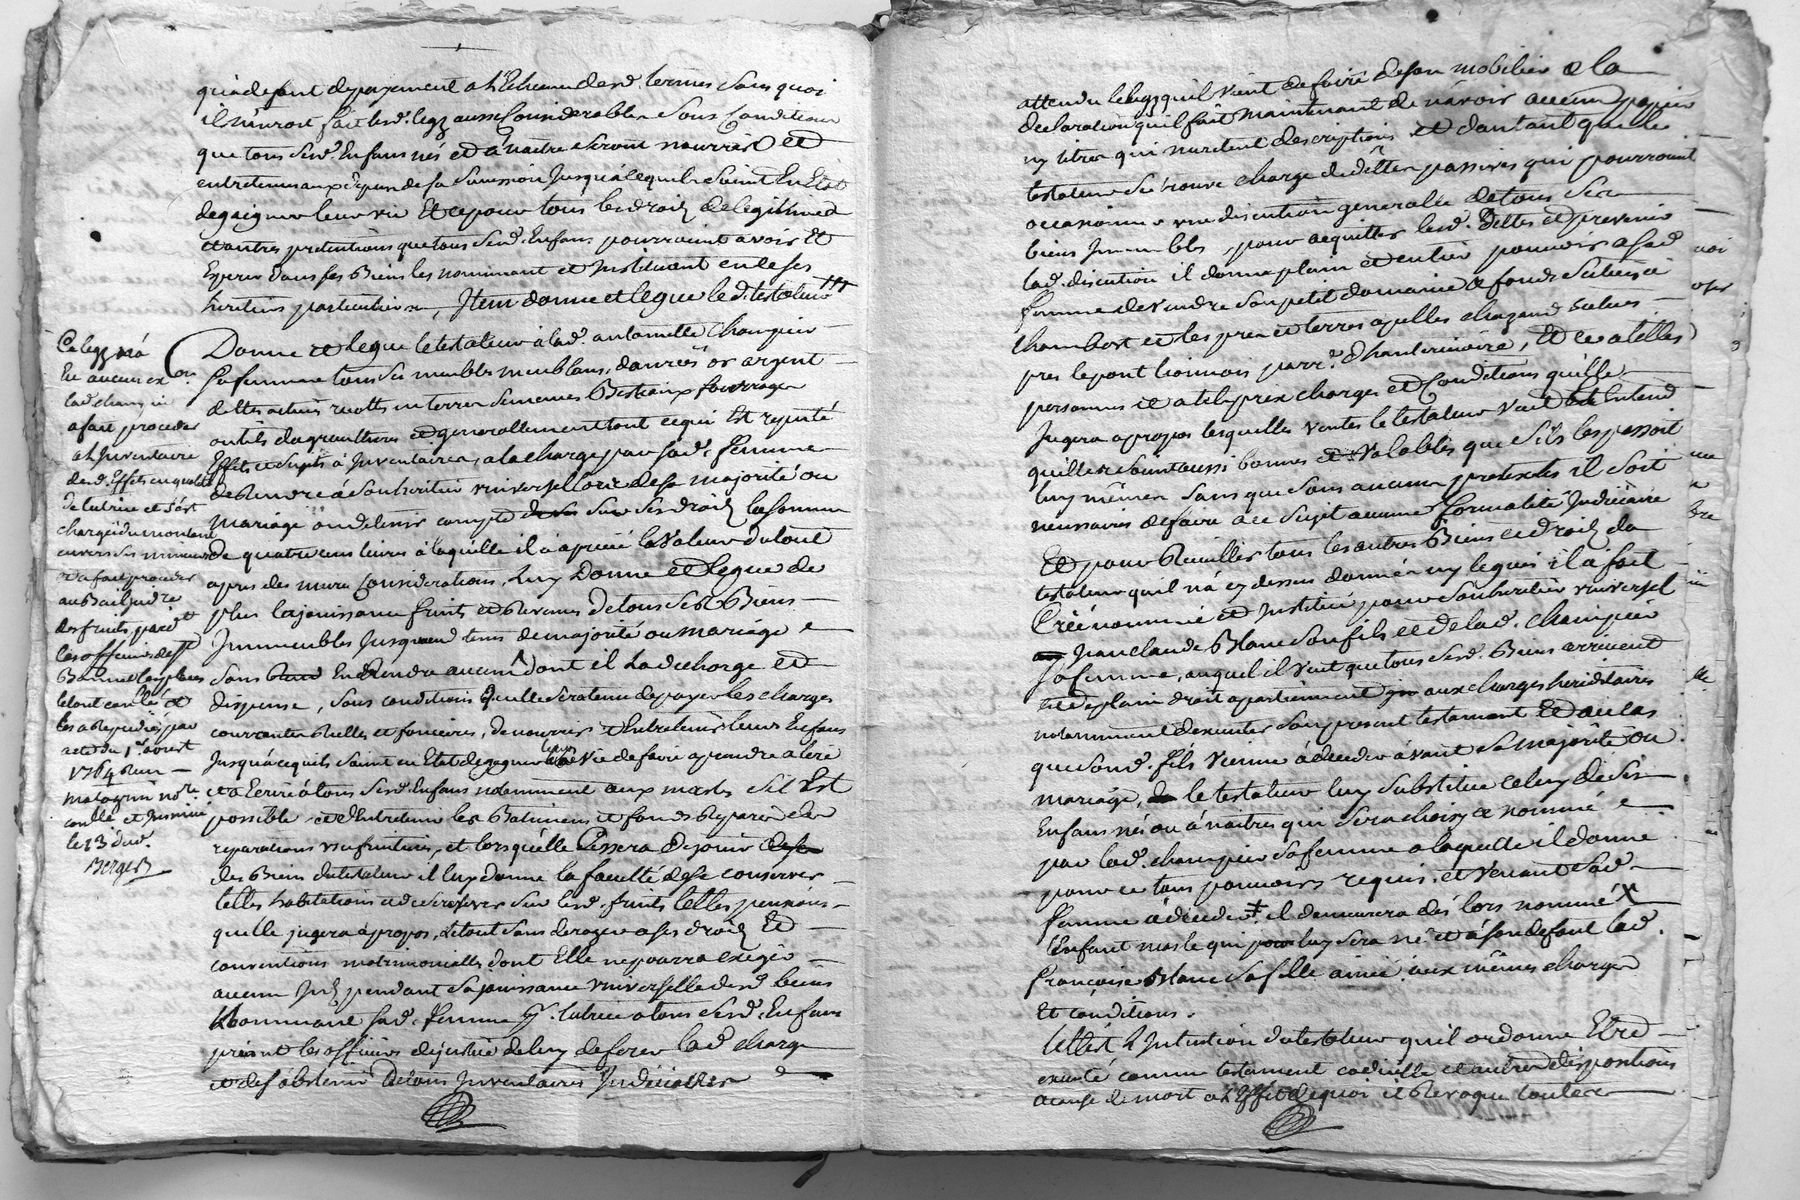 qu'à defaut de payement a l'Echeance desd. termes sans quoi
il n'auroit fait lesd. legz aussy Considerables Sous Condition
que tous Sesd. Enfans nés et a naitre seront nourris et
entretenus aux depens de sa Succession Jusqu'à ce qu'ils Soient En Etat
de gaigner leur vie Et ce pour tous les droits de legitime
et autres pretentions que tous Sesd. Enfans pourroient avoir Et
Esperer dans ses Biens les nommant et Instituant en ce ses
heritiers particuliers, Item donne et legue led. testateur
Donne et legue le testateur à lad. antoinette Champier
Sa femme tous ses meubles meublans, danrées or argent
dettes actives recoltes en terres Semences Bestiaux fourrages
outils d'agriculture et generallement tout ce qui Est reputé
Effets et Sujets à Inventaire, a la charge par sad. femme
de Rendre à Son heritier universel lors de sa majorité ou
mariage ou de tenir compte Sur Ses droits la somme
de quatre cens livres à laquelle il a aprecié la Valeur du tout
apres des mures Considerations, Luy Donne et Legue de
plus la jouissance fruits et Revenus de tous Ses Biens
Immeubles Jusqu'aud. tems de majorité ou mariage
Sans En Rendre aucun dont il La decharge et
dispense, Sous condition qu'elle Sera tenue de payer les charges
courrantes Réelles et foncieres, de nourrir et Entretenir leurs Enfans
Jusqu'à ce qu'ils Soient en Etat de gagner leur Vie de faire aprendre a lire
et a Ecrire à tous Sesd. Enfans notamment aux masles S'il Est
possible et d'Entretenir les Batimens et fonds Reparer des
reparations usufruitieres, et lorsqu'elle Cessera de jouir
des Biens du testateur il luy donne la faculté de se conserver
telles habitations et de se reserver Sur lesd. fruits telles pensions
qu'elle jugera à propos, Le tout Sans deroger a ses droits Et
conventions matrimonialles dont Elle ne pourra exiger
aucun pendant Sa jouissance universelle desd. biens
Nommant sad. femme pr. tutrice a tous Sesd. Enfans
priant les officiers de justice de luy deferer lad. charge
et de s'abstenir De tous Inventaires Judiciaires
Ce legz n'a
Eu aucun ex.on
lad. champier
a fait proceder
a L'Inventaire
desd. Effets en qualité
de tutrice et s'est
chargée du montant
envers ses mineurs
et a fait proceder
au Bail judre
des fruits pardt
les officiers de
le tout contlé et
les a Repudiés par
acte du 1er. avost
1764 Reçu
matagrin nore
contlé et Insinué
le 13 dud.
Berger
attendu le legz qu'il Vient de faire de son mobilier & la
declaration qu'il fait maintenant de n'avoir aucun papier
ny titres qui meritent description et d'autant que le
testateur Se trouve chargé de dettes passives qui pourroient
occasionner une discution generalle de tous Ses
biens Immeubles, pour acquitter lesd. Dettes et prevenir
lad. discution il donne plein et entier pouvoir a sad.
femme de Vendre Son petit domaine & fonds Situés à
Chambost et les prés et terres apellés
pres le pont parr.e d'hauterivoire, Et ce a telles
personnes et a tels prix charges et Conditions qu'elle
Jugera a propos lesquelles ventes le testateur Veut Entend
qu'elles Soient aussi bonnes et Valables que S'il les passoit
luy même Sans que Sous aucuns pretextes il Soit
necessaire de faire a ce Sujet aucune formalité Judiciaire
Et pour Recueillir tous les autres Biens et droits du
testateur qu'il n'a cy dessus donnés ny legués il a fait
Créé nommé et Institué pour Son heritier universel
Jean claude Blanc Son fils et de lad. Champier
sa femme, auquel il Veut que tous Sesd. Biens arrivent
et de plein droit apartiennent aux charges hereditaires
notamment d'executer Son present testament Et au cas
que Sond. fils Vienne à deceder avant Sa majorité ou
mariage, le testateur luy Substitue Celuy de Ses
Enfans nés ou à naitres qui Sera choisy & nommé
par lad. champier Sa femme a laquelle il donne
pour ce tous pouvoirs requis, et Venant Sad.
femme à deceder il demeurera dés lors nommé
l'Enfant masle qui luy Sera né et à Son defaut lad.
françoise Blanc Sa fille ainée aux mêmes charges
Et conditions.
telle est L'Intention du testateur qu'il ordonne Etre
executé comme testament codicille et autres dispositions
a cause de mort a L'Effet de quoi il Revoque toutes